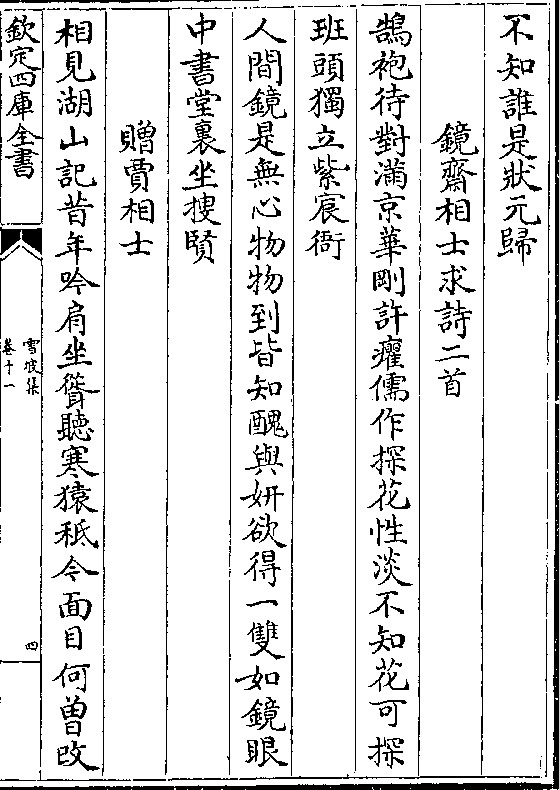 不知誰是狀元歸
鏡齋相士求詩二首
鵠袍待對滿京華剛許癯儒作探花性淡不知花可探
班頭獨立紫宸衙
人間鏡是無心物物到皆知醜與妍欲得一雙如鏡眼
中書堂裏坐搜賢
贈賈相士
相見湖山記昔年吟肩坐聳聽寒猿秪今面目何曾改
欽定四庫全書
雪坡集
卷十一
四